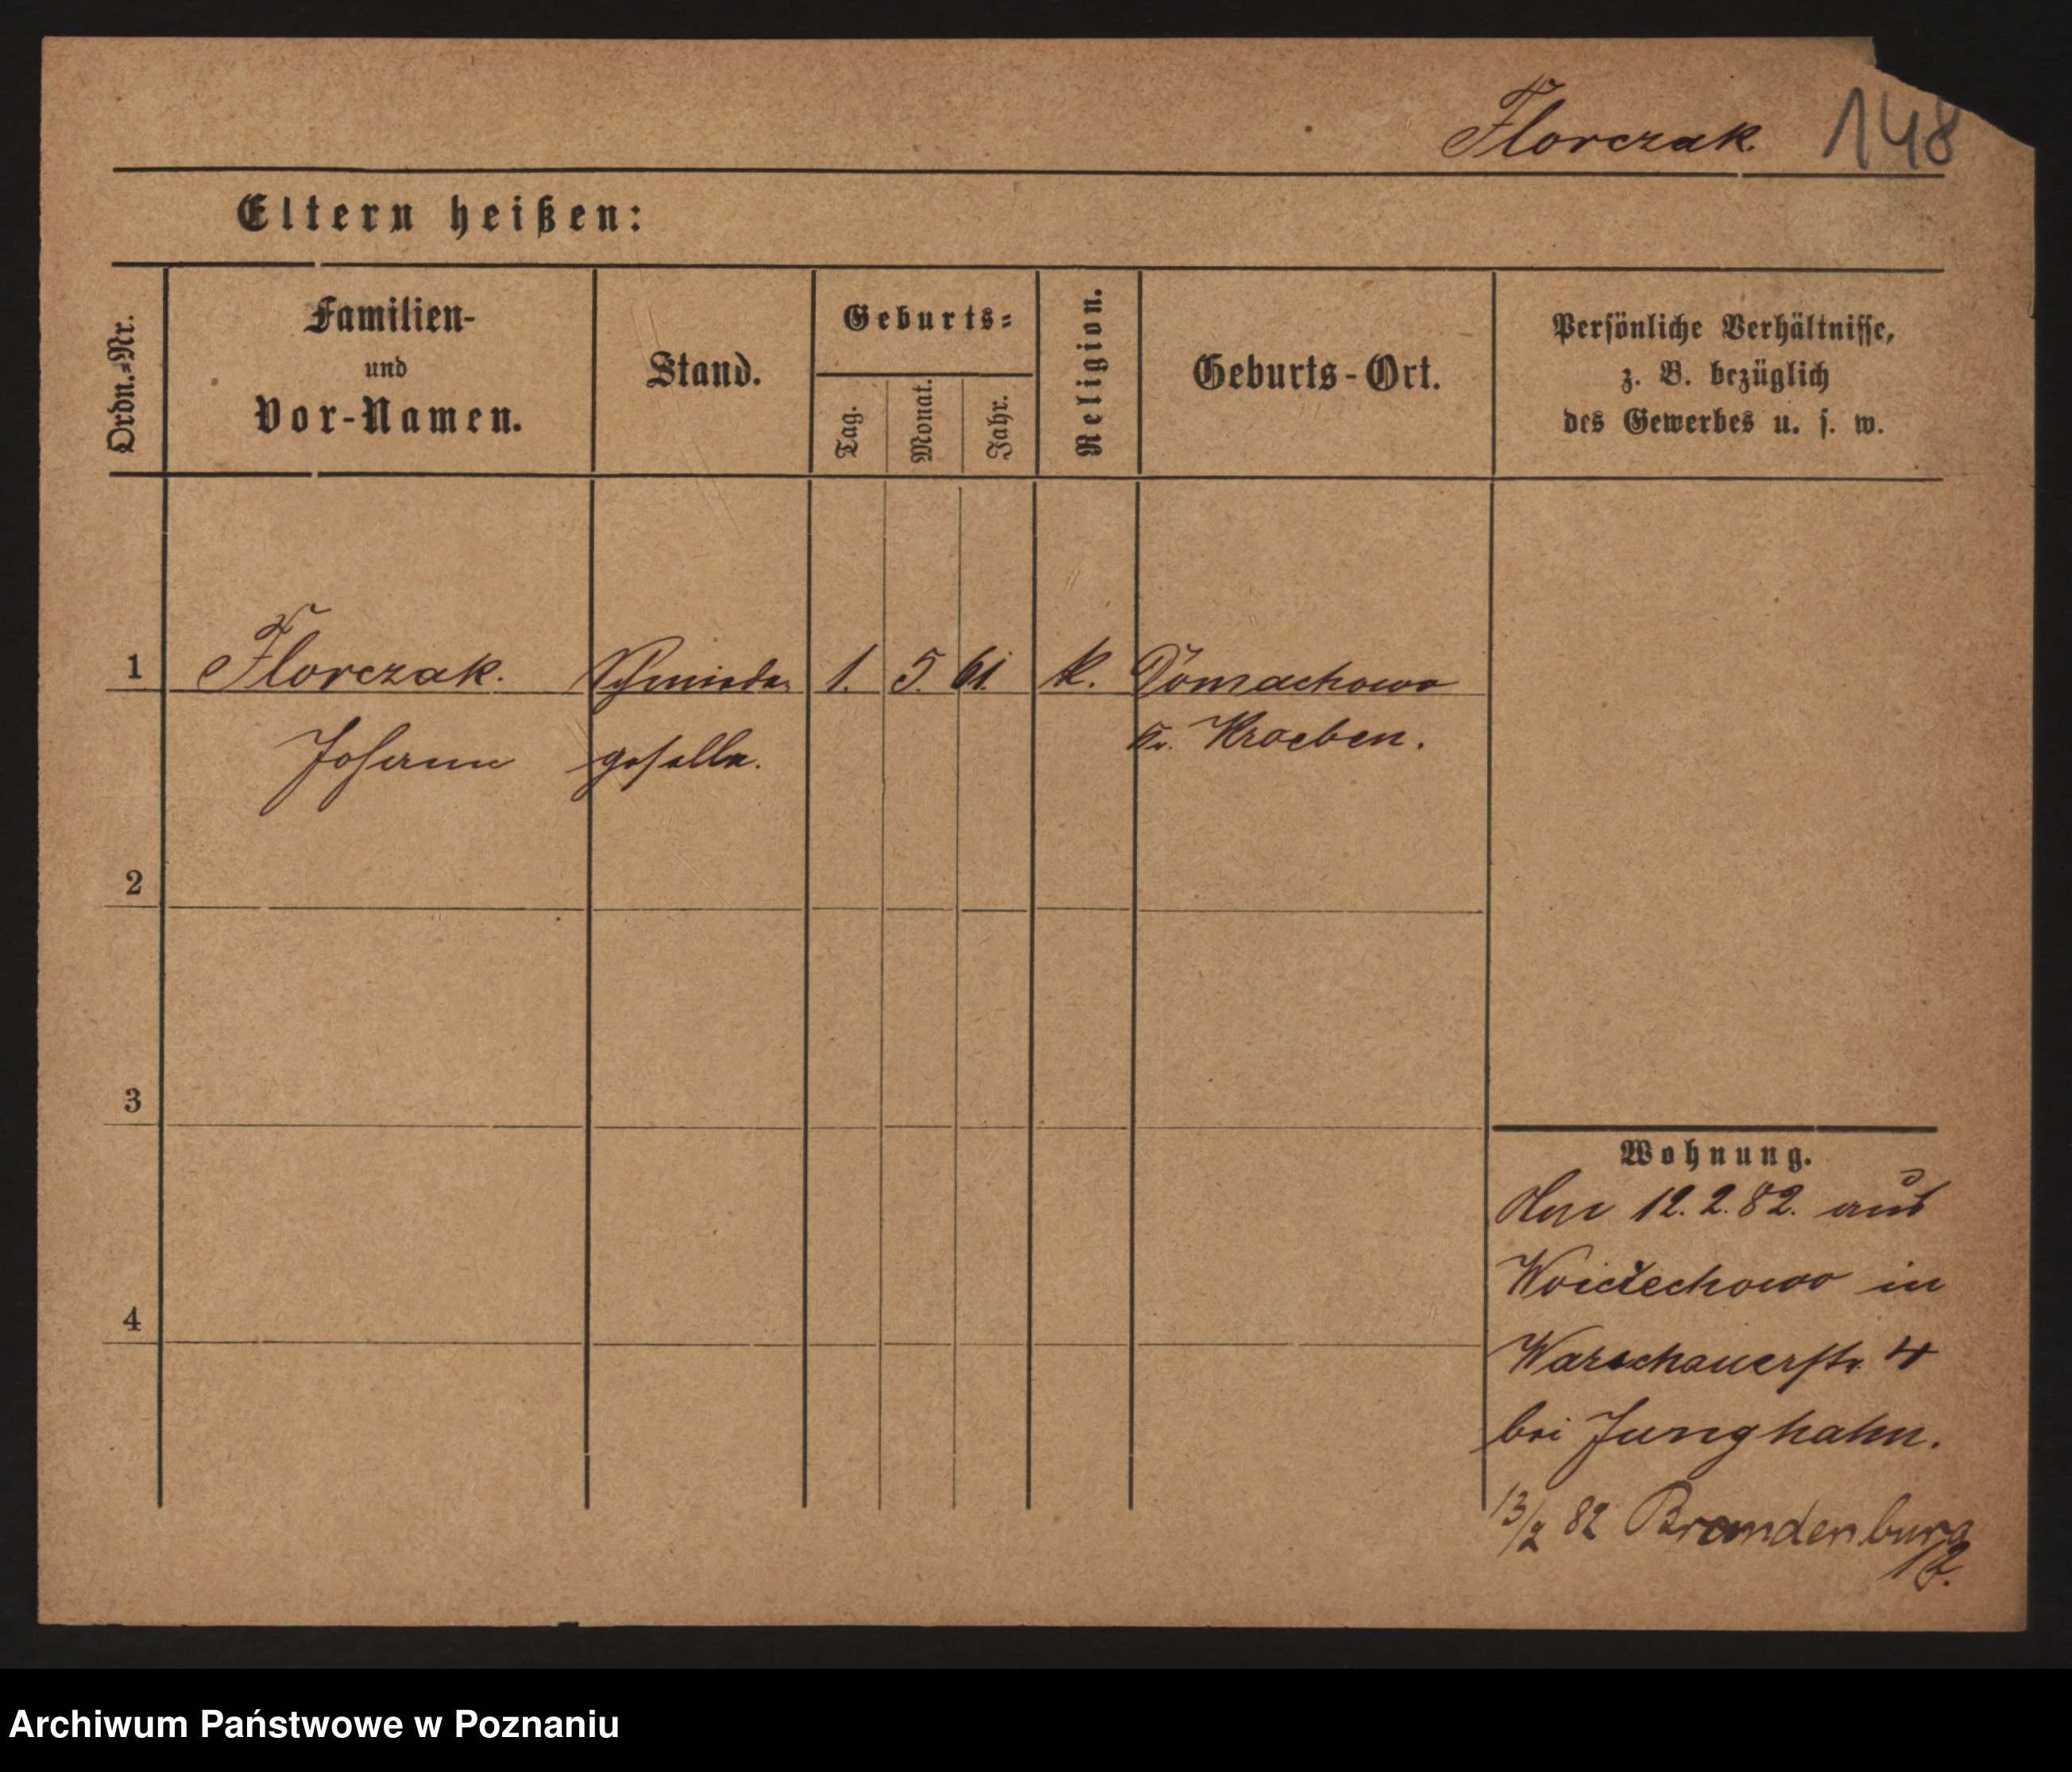 Florczak. 148
Eltern heißen:
Ordn.-Nr.
Familien-
und
Vor-Namen.
Stand.
Geburts-
Tag.
Monat.
Jahr.
Religion.
Geburts-Ort.
Persönliche Verhältnisse,
z. B. bezüglich
des Gewerbes u. s. w.
1 Florczak. Schmiede- 1. 5. 61. k. Domachowo
Johann geselle. Kr. Kroeben.
2
3
4
Wohnung.
12. 2. 82. aus
Woiciechowo in
Warschauerstr. 4
bei Junghahn.
13/2 82 Brandenburg
Archiwum Państwowe w Poznaniu